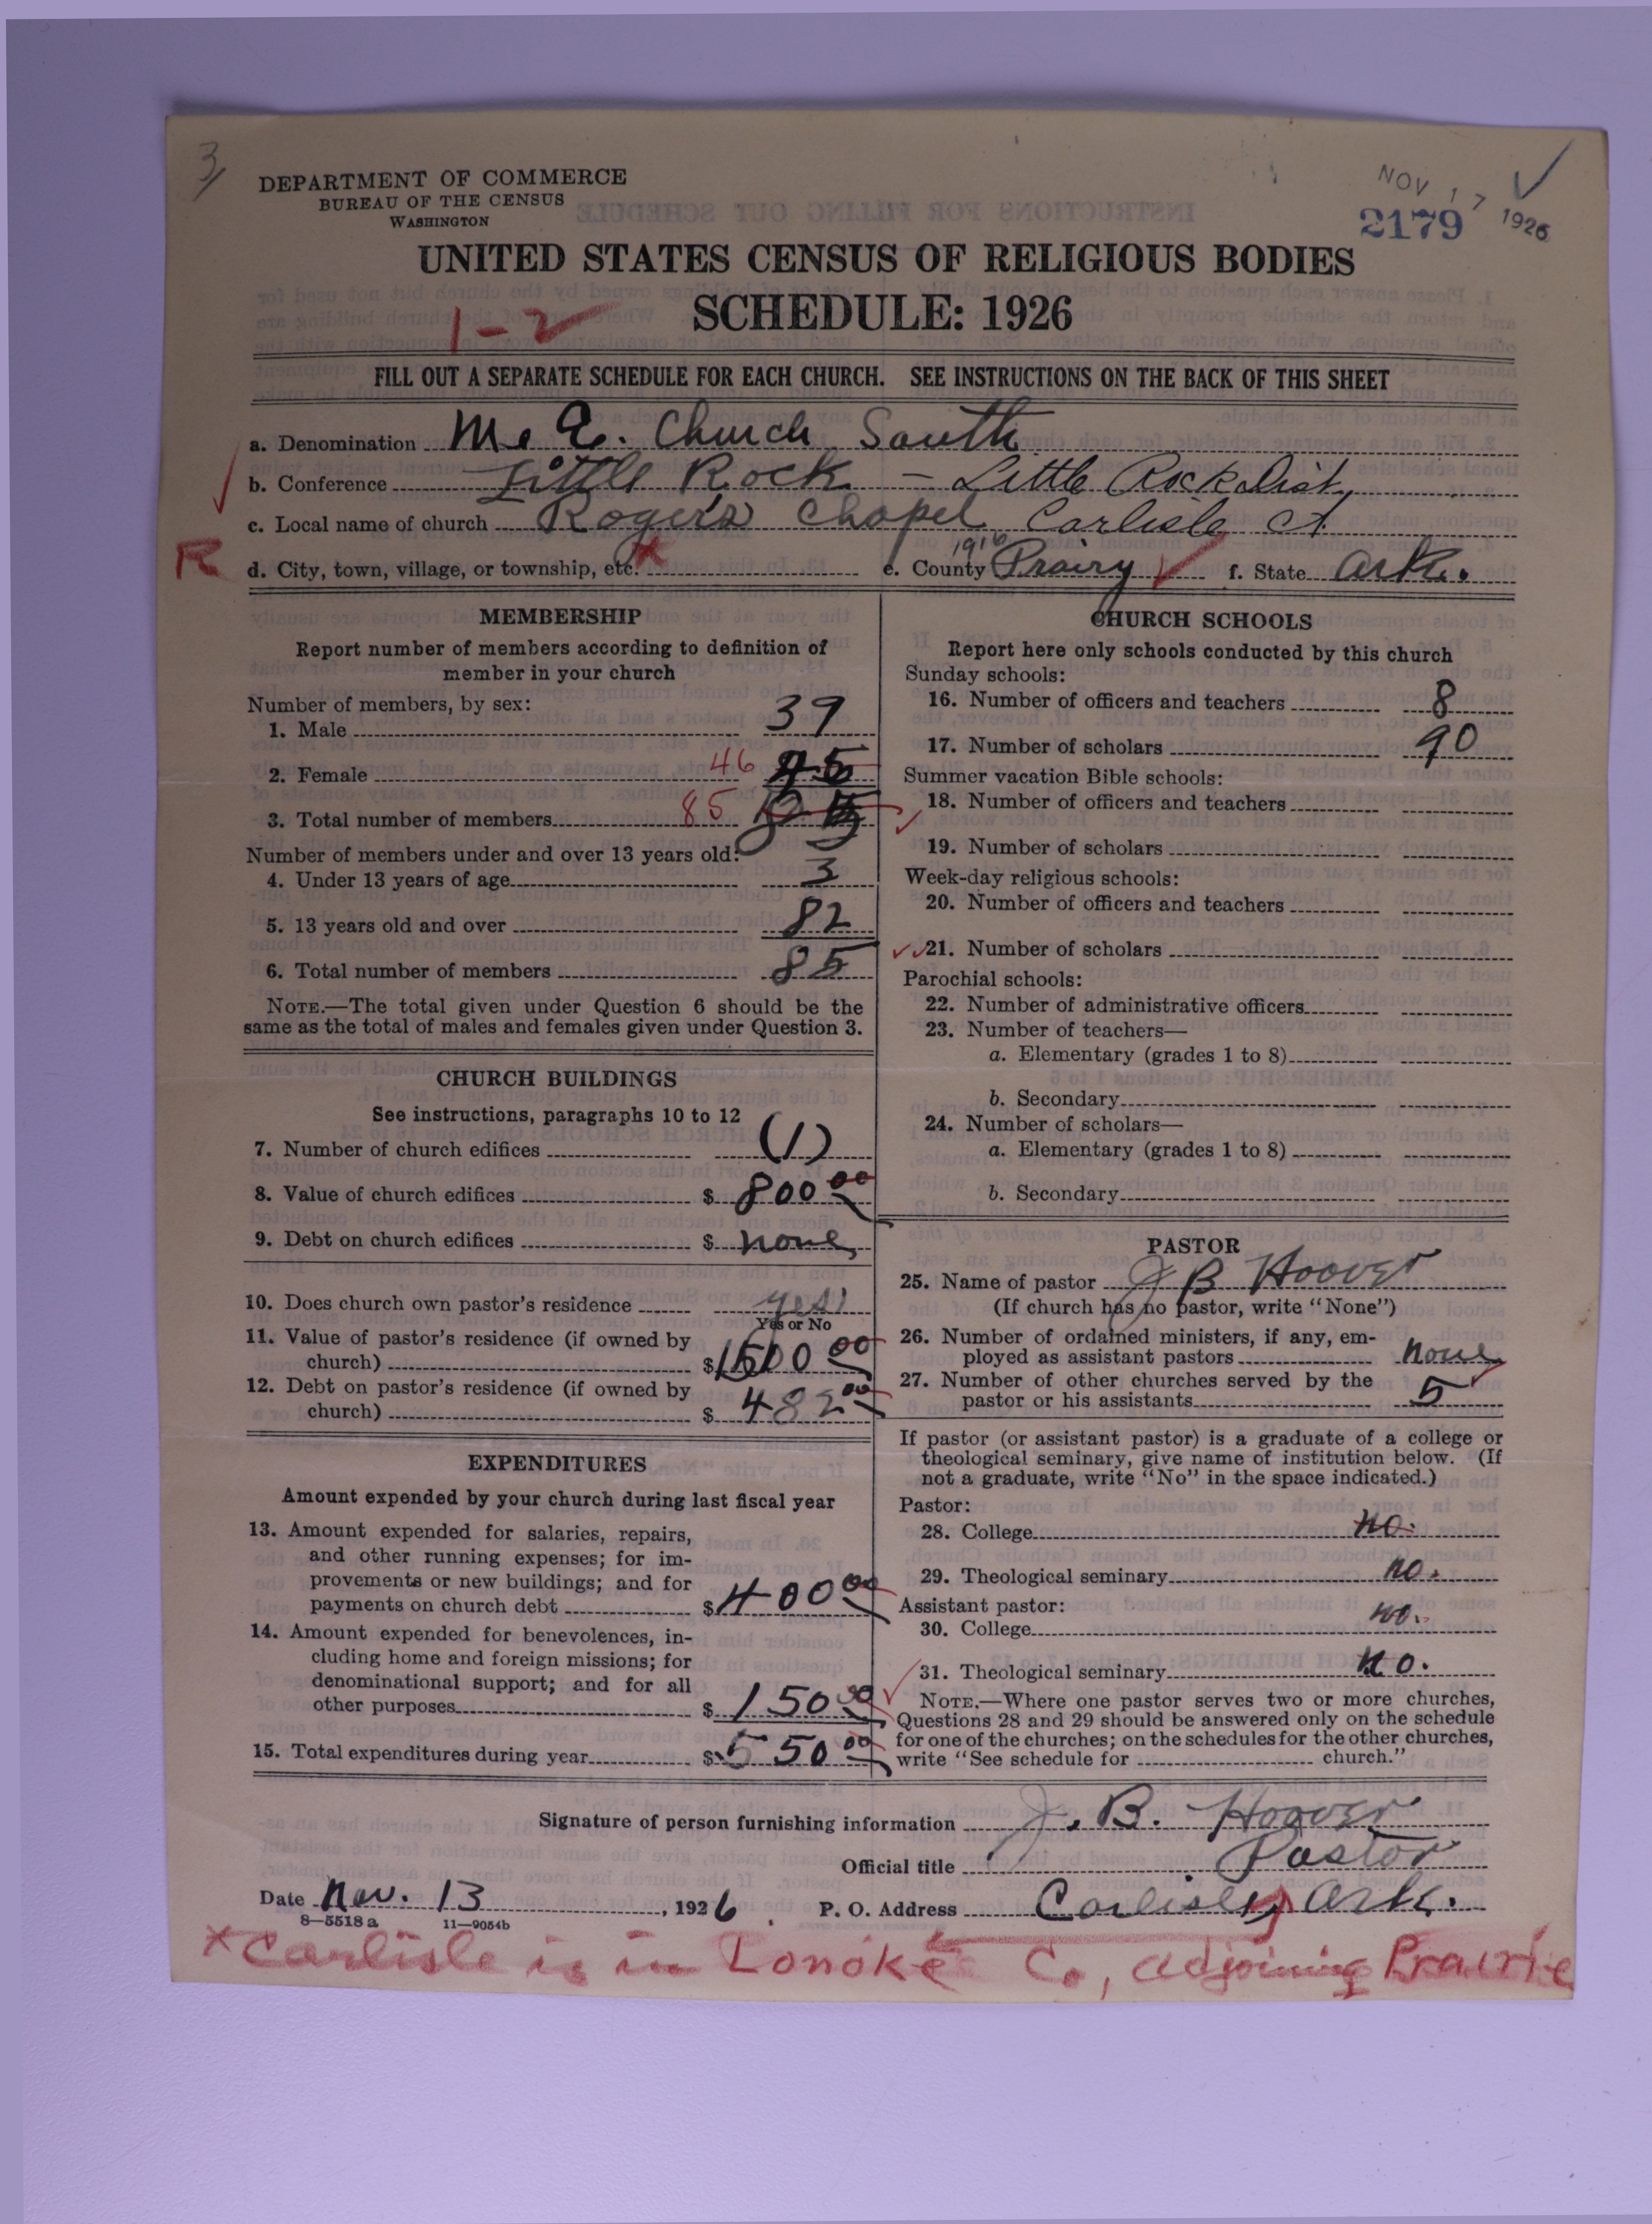 3
DEPARTMENT OF COMMERCE
BUREAU OF THE CENSUS
WASHINGTON
NOV 17 1926
2179
UNITED STATES CENSUS OF RELIGIOUS BODIES
SCHEDULE: 1926
1-2
FILL OUT A SEPARATE SCHEDULE FOR EACH CHURCH. SEE INSTRUCTIONS ON THE BACK OF THIS SHEET
a. Denomination M. E. Church South
b. Conference Little Rock - Little Rock Dist.
c. Local name of church Rogers Chapel Carlisle Ct.
R d. City, town, village, or township, etc. x 1916 e. County Prairy f. State Ark.
MEMBERSHIP
Report number of members according to definition of
member in your church
Number of members, by sex:
1. Male 39
2. Female 46 45
3. Total number of members 85
Number of members under and over 13 years old:
4. Under 13 years of age 3
5. 13 years old and over 82
6. Total number of members 85
NOTE.—The total given under Question 6 should be the
same as the total of males and females given under Question 3.
CHURCH BUILDINGS
See instructions, paragraphs 10 to 12
7. Number of church edifices (1)
8. Value of church edifices $ 800 00
9. Debt on church edifices $ none
10. Does church own pastor's residence yes
Yes or No
11. Value of pastor's residence (if owned by
church) $ 1500 00
12. Debt on pastor's residence (if owned by
church) $ 482 00
EXPENDITURES
Amount expended by your church during last fiscal year
13. Amount expended for salaries, repairs,
and other running expenses; for im-
provements or new buildings; and for
payments on church debt $ 400 00
14. Amount expended for benevolences, in-
cluding home and foreign missions; for
denominational support; and for all
other purposes $ 150 00
15. Total expenditures during year $ 550 00
CHURCH SCHOOLS
Report here only schools conducted by this church
Sunday schools:
16. Number of officers and teachers 8
17. Number of scholars 90
Summer vacation Bible schools:
18. Number of officers and teachers
19. Number of scholars
Week-day religious schools:
20. Number of officers and teachers
21. Number of scholars
Parochial schools:
22. Number of administrative officers
23. Number of teachers—
a. Elementary (grades 1 to 8)
b. Secondary
24. Number of scholars—
a. Elementary (grades 1 to 8)
b. Secondary
PASTOR
25. Name of pastor J B Hoover
(If church has no pastor, write "None")
26. Number of ordained ministers, if any, em-
ployed as assistant pastors none
27. Number of other churches served by the
pastor or his assistants 5
If pastor (or assistant pastor) is a graduate of a college or
theological seminary, give name of institution below. (If
not a graduate, write "No" in the space indicated.)
Pastor:
28. College no.
29. Theological seminary no.
Assistant pastor:
30. College no.
31. Theological seminary no.
NOTE.—Where one pastor serves two or more churches,
Questions 28 and 29 should be answered only on the schedule
for one of the churches; on the schedules for the other churches,
write "See schedule for church."
Signature of person furnishing information J. B. Hoover
Official title Pastor
Date Nov. 13, 1926 P. O. Address Carlisle, Ark.
8—5518 a 11—9054b
x Carlisle is in Lonoke Co, adjoining Prairie